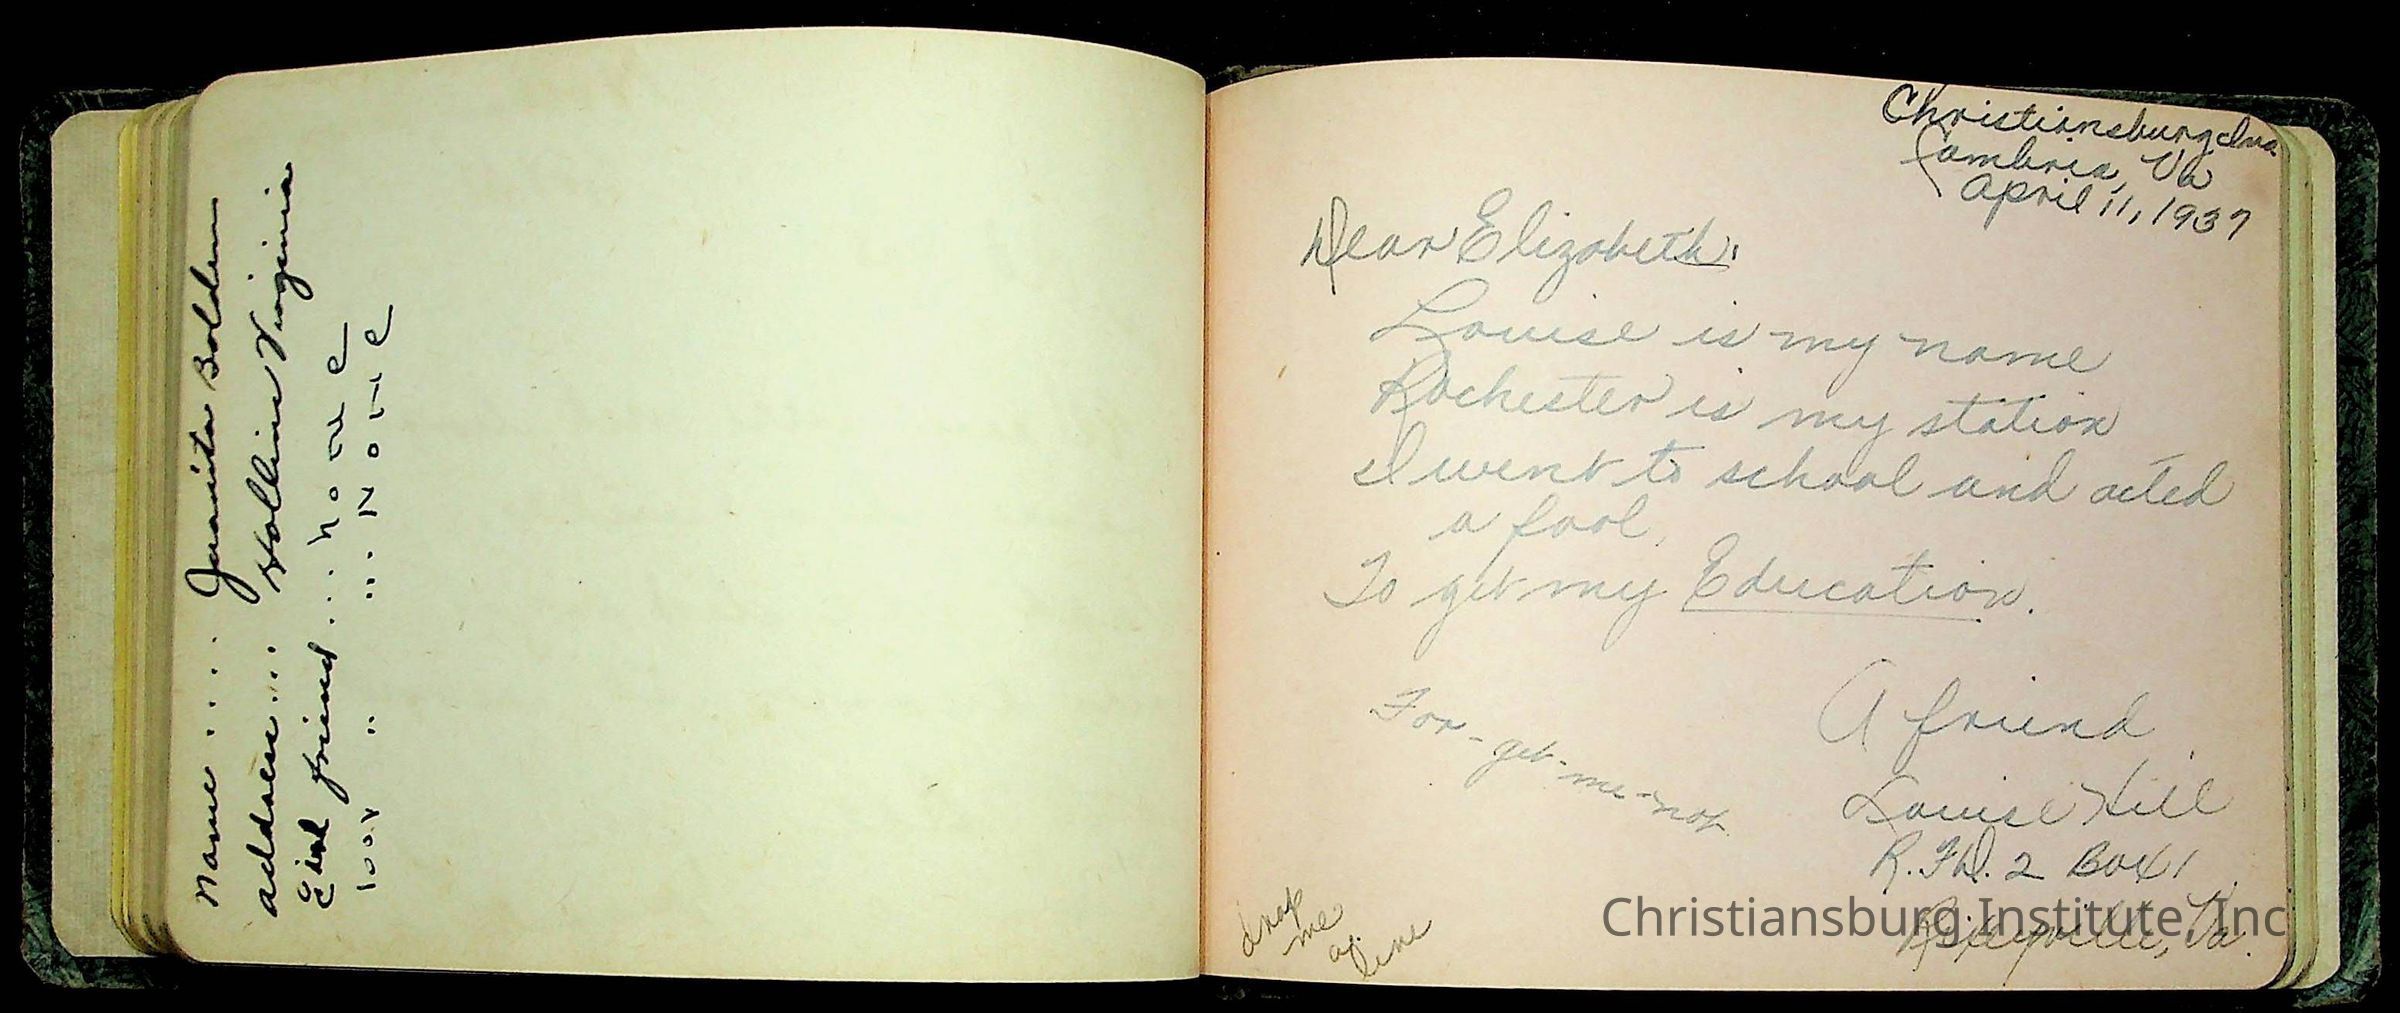 Name .... Juanita Bolden
address.... Hollins Virginia
Girl friend .... none
boy " .... None
Christiansburg Ins.
Cambria, Va
April 11, 1937
Dear Elizabeth:
Louise is my name
Rochester is my station
I went to school and acted
a fool,
To get my Education.
A friend
For-get-me-not
Louise Hill
R.F.D. 2 Box 1
Rixeyville, Va.
drop
me
a
line
Christiansburg Institute, Inc